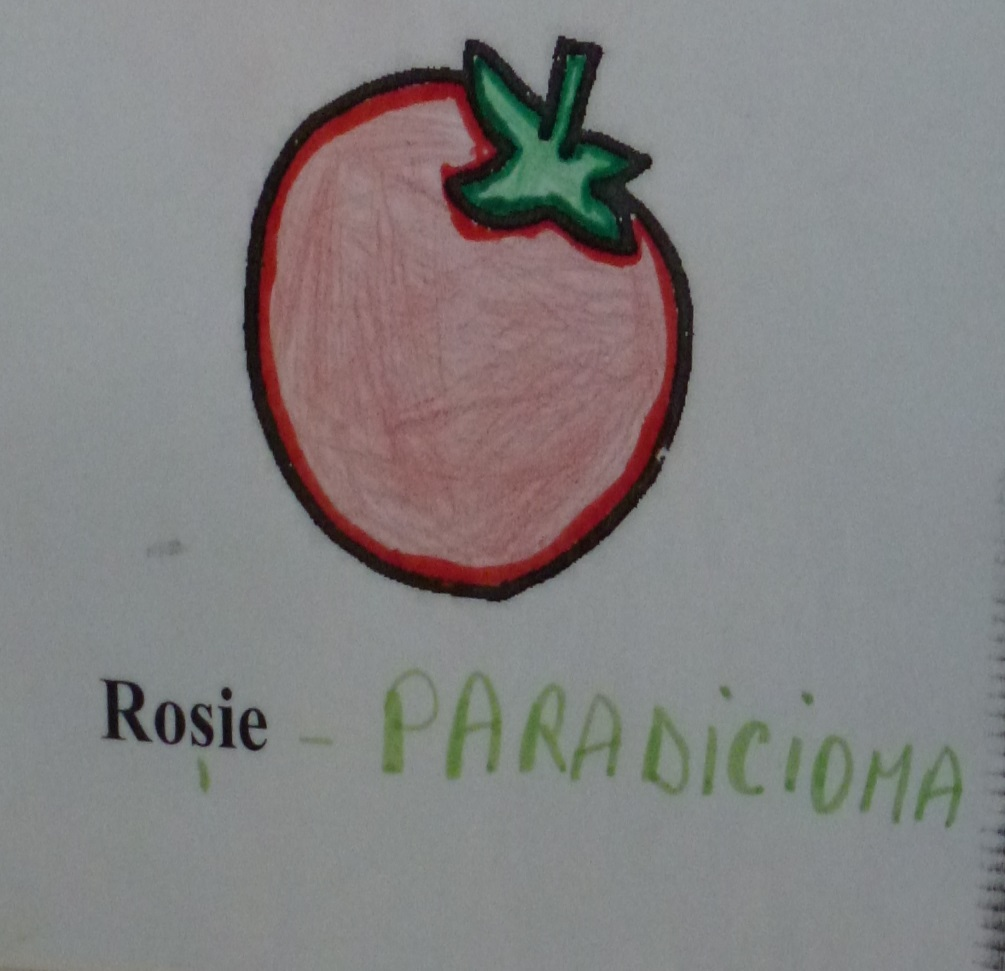 Roșie - PARADiCiOMA